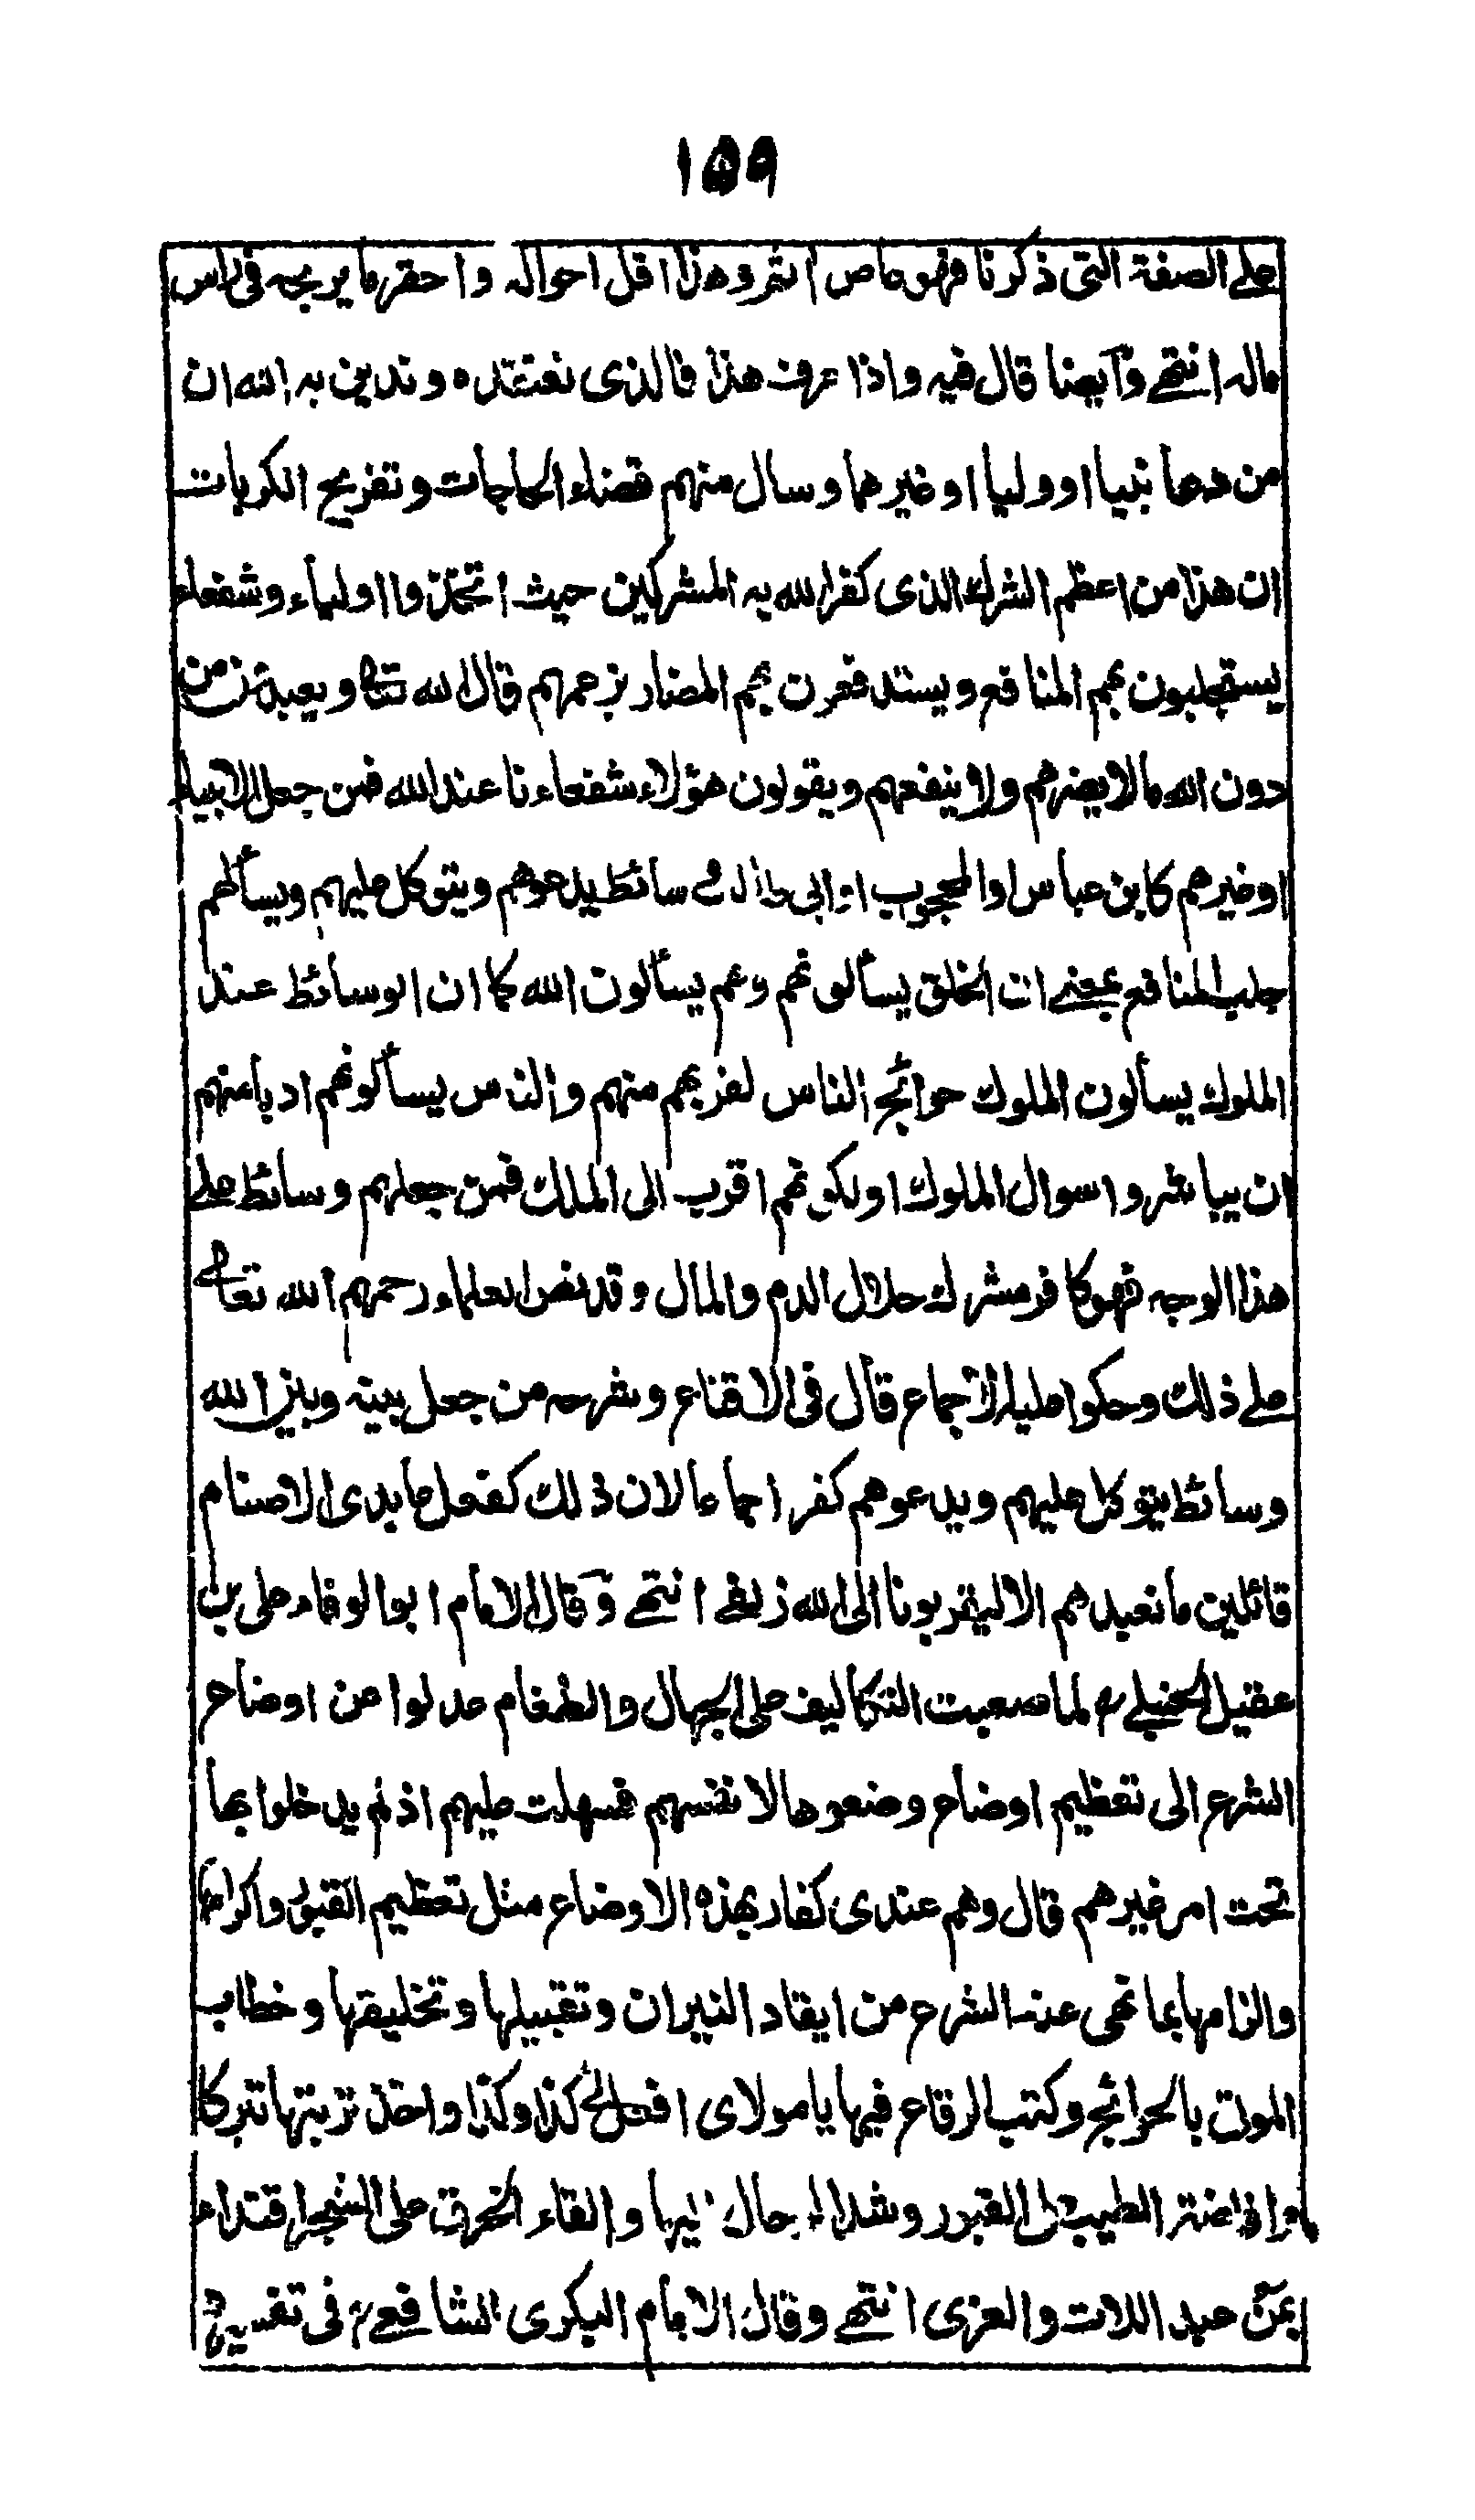 ١٥٩
على الصفة التى ذكرنا فهو عاص اثم وهذا اقل احواله واحقر ما يربحه فى راس
ماله انتهى وآيضا قال فيه واذا عرف هذا فالذى نعتقده وندين به الله ان
من دعا نبيا او وليا او غيرهما وسال منهم قضاء الحاجات وتفريج الكربات
ان هذا من اعظم الشرك الذى كفر الله به المشركين حيث اتخذوا اولياء وشفعاء
يستجلبون بهم المنافع ويستدفعون بهم المضار بزعمهم قال الله تعالى ويعبدون من
دون الله مالا يضرهم ولا ينفعهم ويقولون هؤلاء شفعاءنا عند الله فمن جعل الانبياء
او غيرهم كابن عباس او المحجوب او ابى طالب وسائط يدعوهم ويتوكل عليهم ويسألهم
جلب المنافع بمعنى ان الخلق يسألونهم وهم يسألون الله كما ان الوسائط عند
الملوك يسألون الملوك حوائج الناس لقربهم منهم والناس يسألونهم ادبا منهم
ان يباشروا سوال الملوك او لكونهم اقرب الى الملك فمن جعلهم وسائط على
هذا الوجه فهو كافر مشرك حلال الدم والمال وقد نص العلماء رحمهم الله تعالى
على ذلك وحكوا عليه الاجماع قال فى الاقناع وشرحه من جعل بينه وبين الله
وسائط يتوكل عليهم ويدعوهم كفر اجماعا لان ذلك كفعل عابدى الاصنام
قائلين ما نعبدهم الا ليقربونا الى الله زلفى انتهى وقال الامام ابو الوفاء على بن
عقيل الحنبلى رح لما صعبت التكاليف على الجهال والطغام عدلوا عن اوضاع
الشرع الى تعظيم اوضاع وضعوها لانفسهم فسهلت عليهم اذ لم يدخلوا بها
تحت امر غيرهم قال وهم عندى كفار بهذه الاوضاع مثل تعظيم القبور واكرامها
والزامها بما نهى عنه الشرع من ايقاد النيران وتقبيلها وتخليقها وخطاب
الموتى بالحوائج وكتب الرقاع فيها يا مولاى افعل لى كذا وكذا واخذ تربتها تبركا
وافاضة الطيب على القبور وشد الرحال اليها والقاء الخرق على الشجر اقتداء
بمن عبد اللات والعزى انتهى وقال الامام البكرى الشافعى رح فى تفسيره